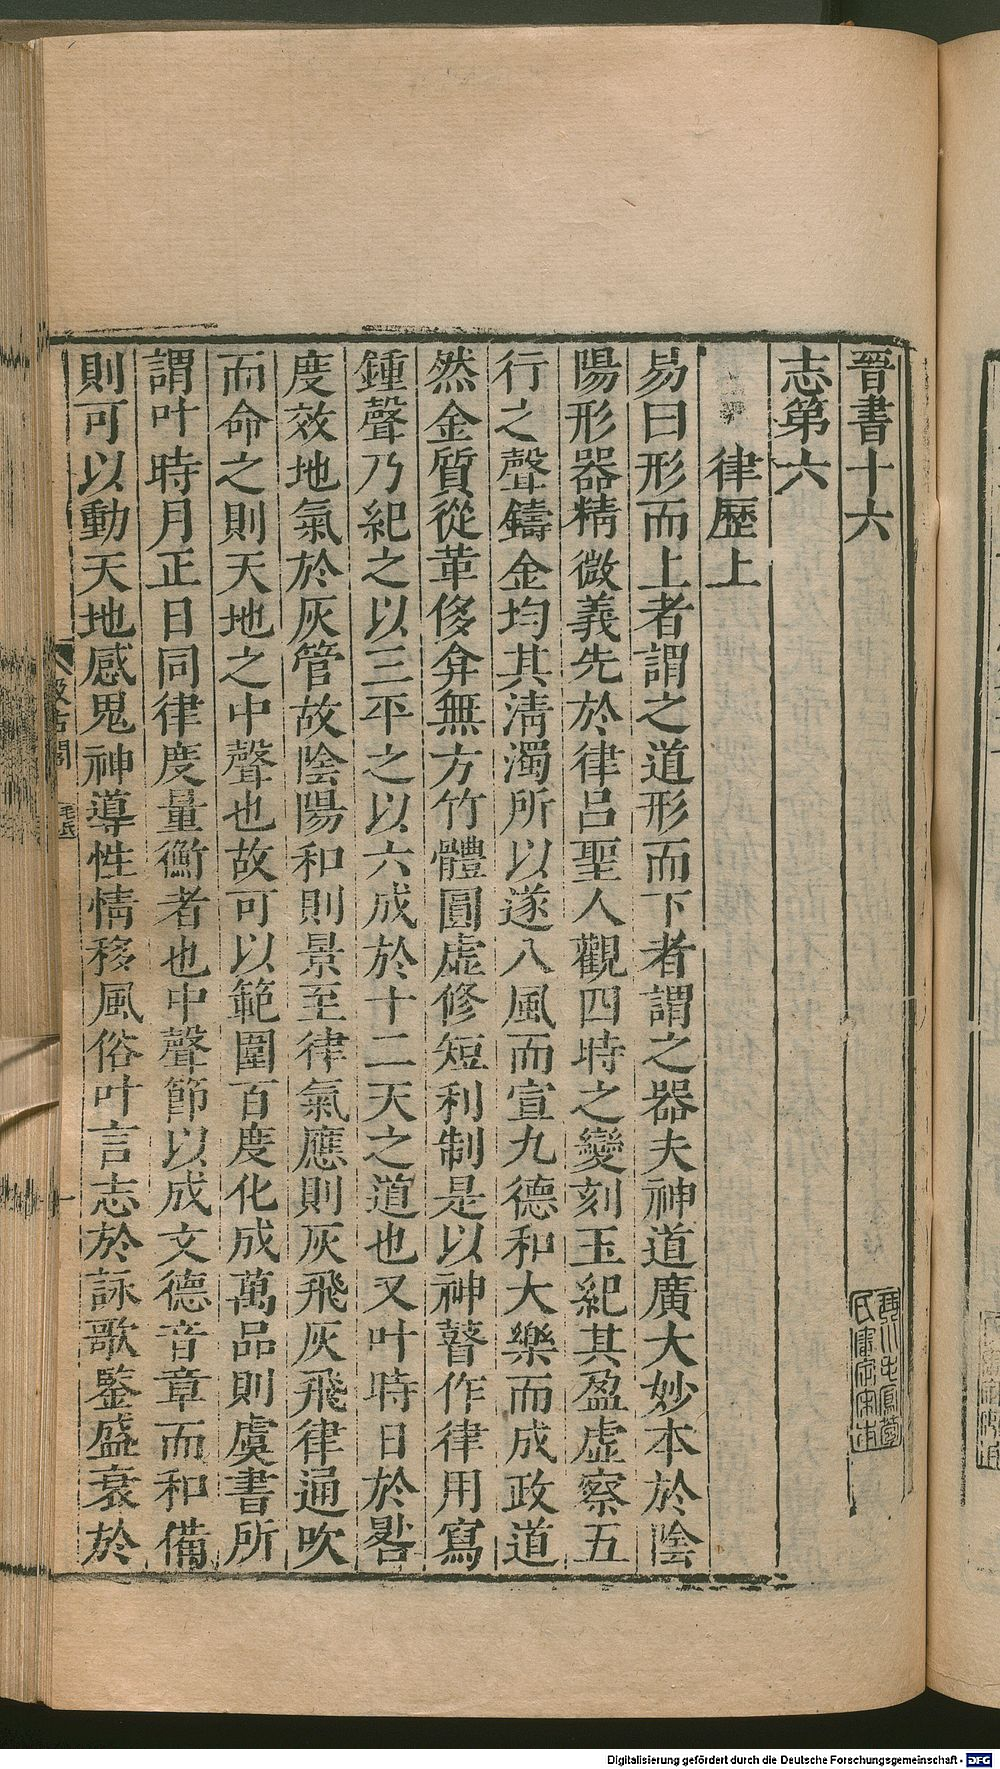 晉書十六
志第六
律歷上
易曰形而上者謂之道形而下者謂之器夫神道廣大妙本於陰
陽形器精微義先於律呂聖人觀四時之變刻玉紀其盈虛察五
行之聲鑄金均其淸濁所以遂八風而宣九德和大樂而成政道
然金質從革侈弇無方竹體圓虛修短利制是以神瞽作律用寫
鍾聲乃紀之以三平之以六成於十二天之道也又叶時日於晷
度效地氣於灰管故陰陽和則景至律氣應則灰飛灰飛律通吹
而命之則天地之中聲也故可以範圍百度化成萬品則虞書所
謂叶時月正日同律度量衡者也中聲節以成文德音章而和備
則可以動天地感鬼神導性情移風俗叶言志於詠歌鑒盛衰於
汲古閣
毛氏
一
琴川毛鳳苞
氏審定宋本
Digitalisierung gefördert durch die Deutsche Forschungsgemeinschaft - DFG